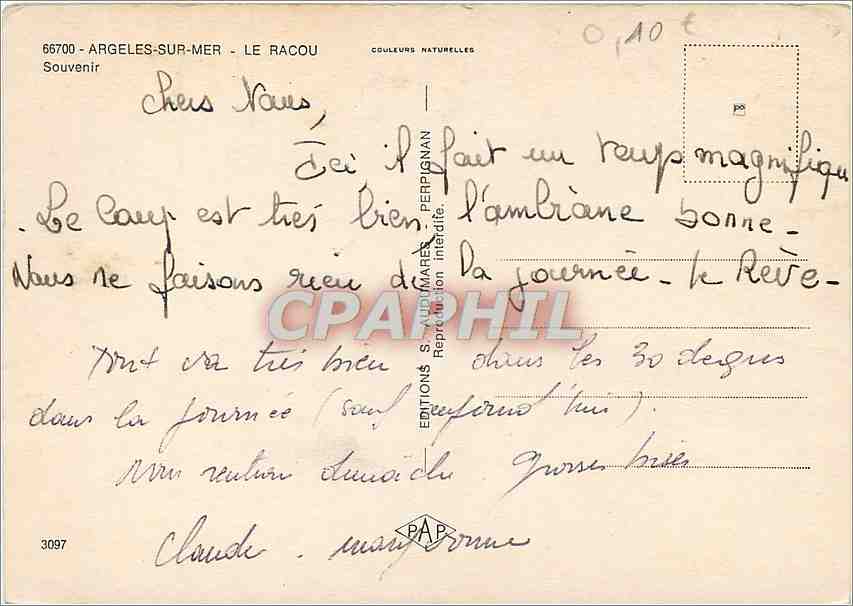 66700 - ARGELES-SUR-MER - LE RACOU
COULEURS NATURELLES
0,10 €
Souvenir
Chers Nous,
Ici il fait un temps magnifique
. Le Camp est très bien, l'ambiane bonne -
Nous ne faisons rien de la journée - le Rêve -
EDITIONS S. AUDUMARES - PERPIGNAN
Reproduction interdite.
CPAPHIL
Tout va très bien dans les 30 degrés
dans la journée (sauf aujourd'hui).
nous rentrons dimanche. grosses bises
Claude . mary vonne
3097
PAP